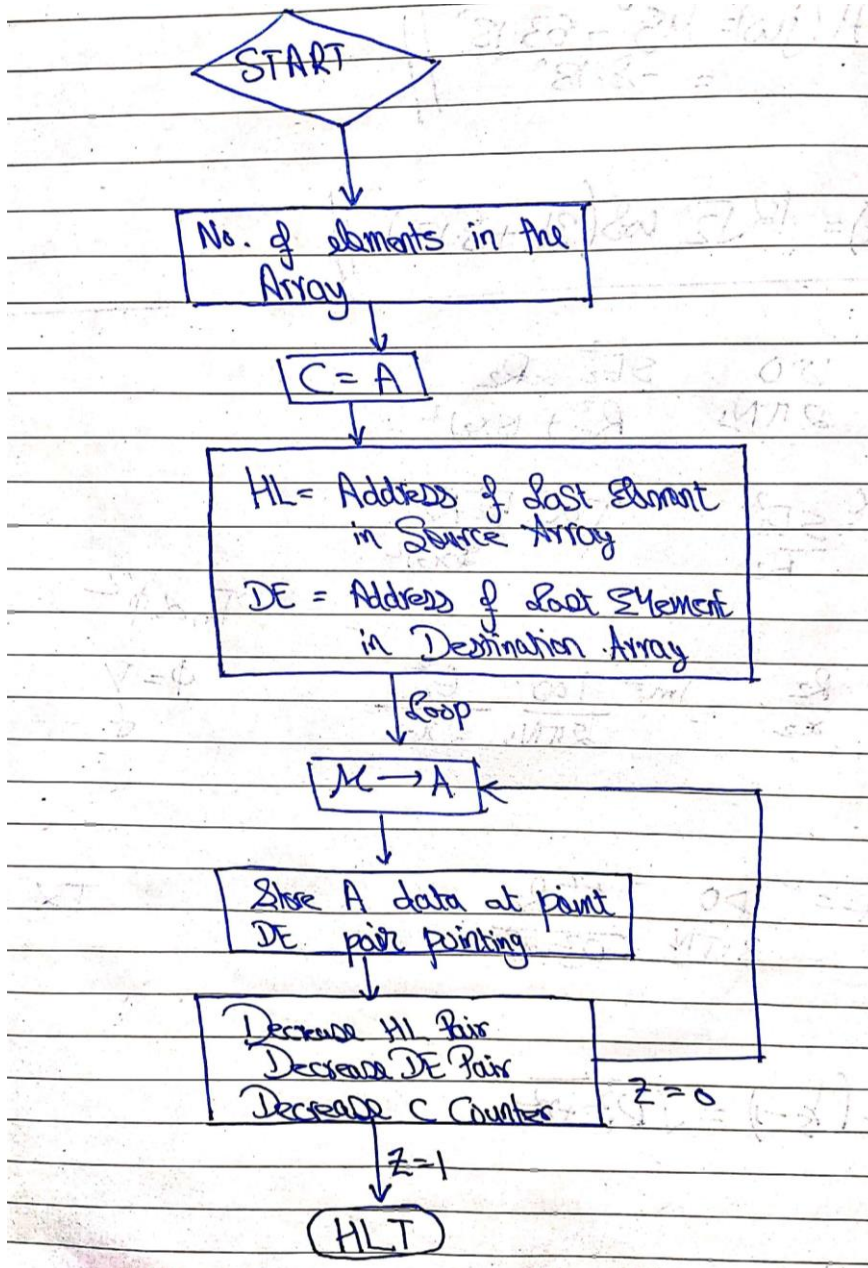 START
No. of elements in the
Array
C = A
HL = Address of Last Element
in Source Array
DE = Address of Last Element
in Destination Array
Loop
M → A
Store A data at point
DE pair pointing
Decrease HL Pair
Decrease DE Pair
Decrease C Counter
Z = 0
Z = 1
HLT